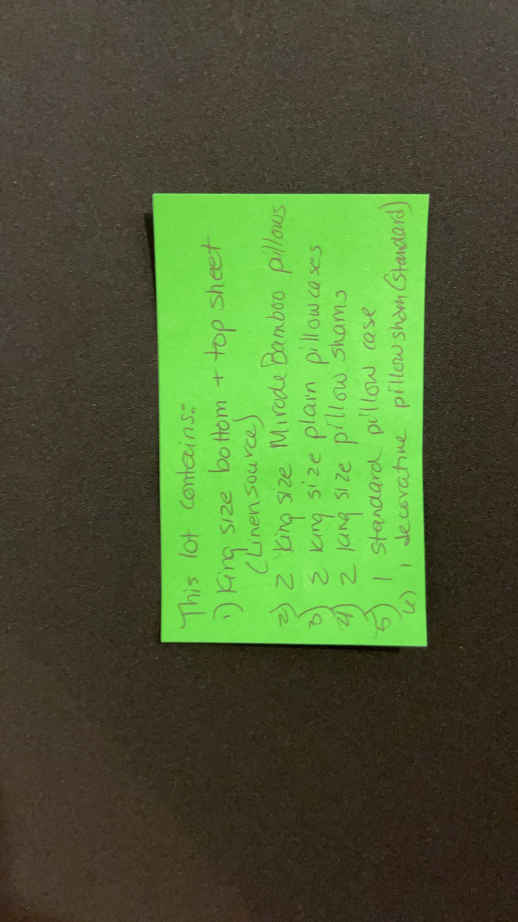 This lot contains:-
1) King size bottom + top sheet
(Linensource)
2) 2 king size Miracle Bamboo pillows
3) 2 king size plain pillowcases
4) 2 king size pillow shams
5) 1 standard pillow case
6) 1 decorative pillow sham (standard)